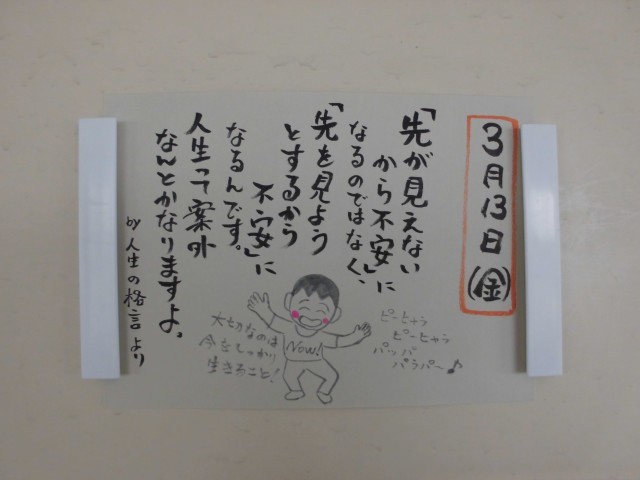 3月13日(金)
「先が見えない
から不安」に
なるのではなく、
「先を見よう
とするから
不安」に
なるんです。
人生って案外
なんとかなりますよ。
by 人生の格言より
ピーヒャラ
ピーヒャラ
パッパ
パラパ〜♪
Now!
大切なのは
今をしっかり
生きること!